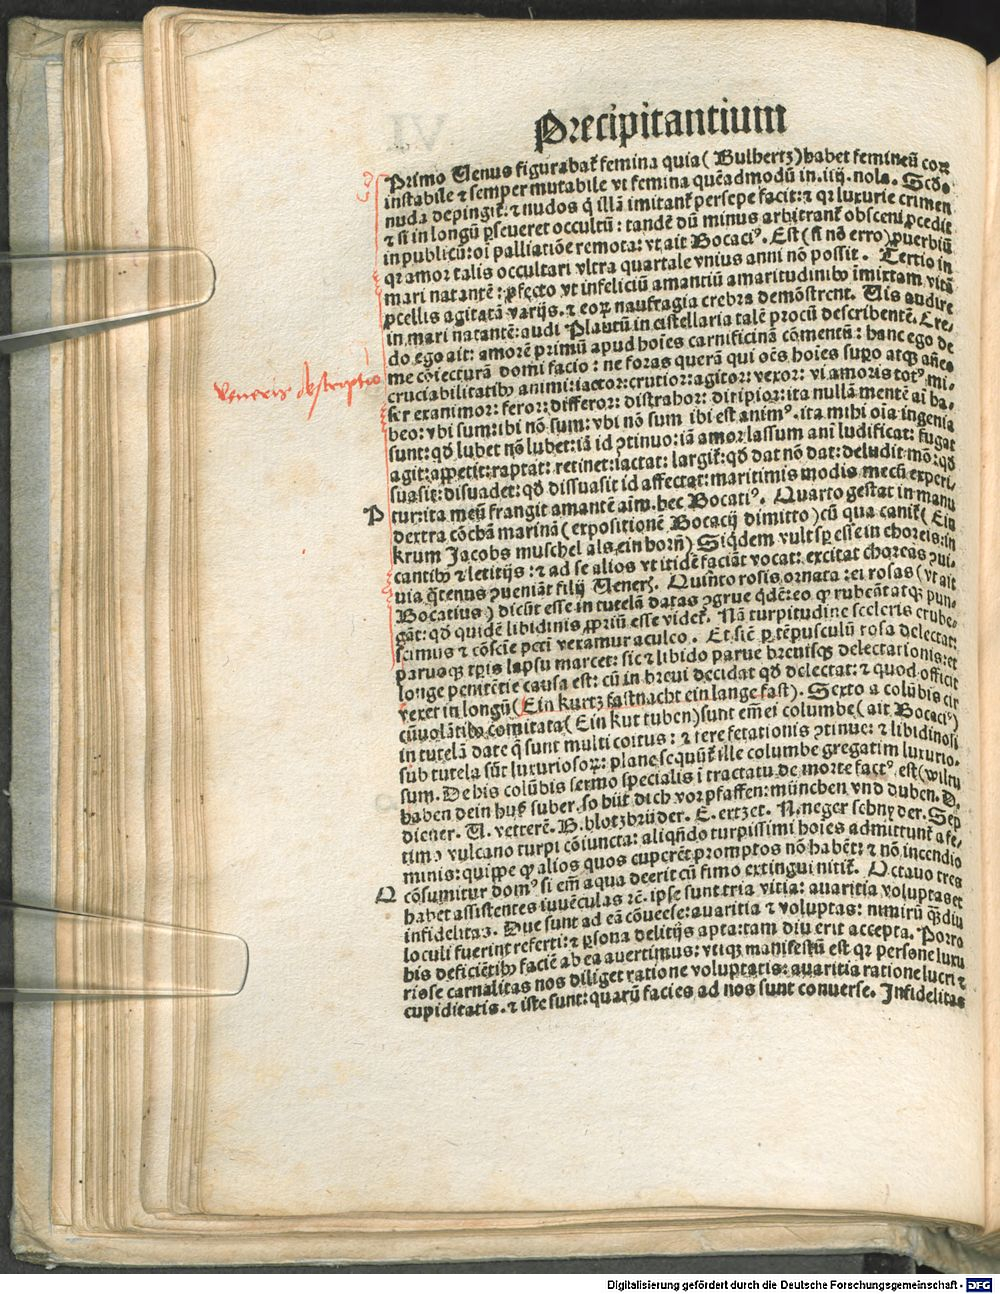 Precipitantium
Primo Venus figurabat᷑ femina quia (Bulhertz) habet femineũ coꝛ
instabile ⁊ semper mutabile vt femina quẽadmodũ in .iiij. nola. Scḋo
nuda depingit᷑. ⁊ nudos q̇ illã imitant᷑ persepe facit: ⁊ qꝛ luxurie crimen
⁊ si in longũ ꝑseueret occultũ: tandẽ dũ minus arbitrant᷑ obsceni ꝓcedit
in publicũ: oĩ palliatiõe remota: vt ait Bocaciꝰ. Est (si nõ erro) ꝓuerbiũ
qꝛ amor talis occultari vltra quartale vnius anni nõ possit. Tertio in
mari natantẽ: ꝓfecto vt infeliciũ amantiũ amaritudinibꝰ ĩmixtam vitã
ꝓcellis agitatã varijs. ⁊ eoꝝ naufragia crebra demõstrent. Vis audire
in mari natantẽ: audi Plautũ in cistellaria talẽ procũ describentẽ. Cre-
do ego ait: amorẽ primũ apud hoĩes carnificinã cõmentũ: hanc ego de
me cõiecturã domi facio: ne foras querã qui oẽs hoĩes supo atqꝫ añeo
cruciabilitatibꝰ animi: iactor: crutior: agitor: vexor: vi amoris totꝰ mi-
ser exanimor: feror: differor: distrahor: diripior: ita nullã mentẽ aĩ ha-
Veneris descriptio
beo: vbi sum: ibi nõ sum: vbi nõ sum ibi est animꝰ. ita mihi oĩa ingenia
sunt: qḋ lubet nõ lubet: iã id ꝯtinuo: iã amor lassum anĩ ludificat: fugat
agit: appetit: raptat: retinet: iactat: largit᷑: qḋ dat nõ dat: deludit mõ: qḋ
suasit: disuadet: qḋ dissuasit id affectat: maritimis modis mecũ experi-
P tur: ita meũ frangit amantẽ aĩm. hec Bocatiꝰ. Quarto gestat in manu
dextra cõchã marinã (expositionẽ Bocacij dimitto) cũ qua canit᷑ (Ein
krum Jacobs muschel als ein horñ) Siq̇dem vult sꝑ esse in choreis: in
cantibꝰ ⁊ letitijs: ⁊ ad se alios vt itidẽ faciãt vocat: excitat choreas ꝯui-
uia q̃tenus ꝯueniãt filij Veneris. Quinto rosis ornata: ei rosas (vt ait
Bocatius) dicũt esse in tutelã datas ꝯgrue q̇dẽ: eo ꝙ rubeãt atqꝫ pun-
gãt: qḋ quidẽ libidinis ꝓpriũ esse videt᷑. Nã turpitudine sceleris erube-
scimus ⁊ cõscie pcti vexamur aculeo. Et sicut ꝑ tẽpusculũ rosa delectat:
paruoqꝫ tꝑis lapsu marcet: sic ⁊ libido parue breuisqꝫ delectationis: et
longe penitẽtie causa est: cũ in breui decidat qḋ delectat: ⁊ quod officit
vexet in longũ (Ein kurtz fastnacht ein lange fast). Sexto a colũbis cir
cũuolãtibꝰ comitata (Ein kut tuben) sunt em̃ ei columbe (ait Bocaciꝰ)
in tutelã date q̇ sunt multi coitus: ⁊ fere fetationis ꝯtinue: ⁊ libidinosi
sub tutela sũt luxuriosoꝝ: plane sequũt᷑ ille columbe gregatim luxurio-
sum. De his colũbis sermo specialis ĩ tractatu de morte factꝰ est (wiltu
haben dein huß suber. so hüt dich vor pfaffen: münchen vnd duben. D.
diener. V. vetterẽ. B. blotzbrüder. E. ertzet. N. neger schnyder. Sep
timo vulcano turpi cõiuncta: aliqñdo turpissimi hoĩes admittunt᷑ a fe-
minis: quippe ꝙ alios quos cuperẽt promptos nõ habẽt: ⁊ nõ incendio
Q cõsumitur domꝰ si em̃ aqua deerit cũ fimo extingui nitit᷑. Octauo tres
habet assistentes iuuẽculas ⁊c. ipse sunt tria vitia: auaritia voluptas et
infidelitas. Due sunt ad eã cõuerse: auaritia ⁊ voluptas: nimirũ q̃diu
loculi fuerint referti: ⁊ ꝑsona delitijs apta: tam diu erit accepta. Porro
his deficiẽtibꝰ faciẽ ab ea auertimus: vtiqꝫ manifestũ est qꝛ persone luxu
riose carnalitas nos diliget ratione voluptatis: auaritia ratione lucri ⁊
cupiditatis. ⁊ iste sunt: quarũ facies ad nos sunt conuerse. Infidelitas
Digitalisierung gefördert durch die Deutsche Forschungsgemeinschaft - DFG